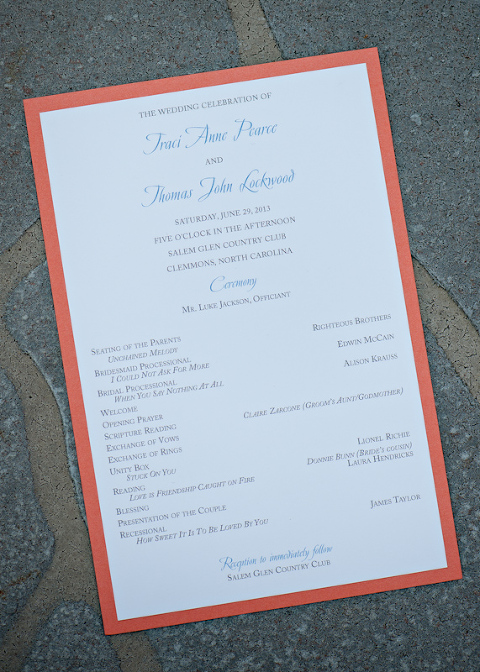 THE WEDDING CELEBRATION OF
Traci Anne Pearce
AND
Thomas John Lockwood
SATURDAY, JUNE 29, 2013
FIVE O'CLOCK IN THE AFTERNOON
SALEM GLEN COUNTRY CLUB
CLEMMONS, NORTH CAROLINA
Ceremony
MR. LUKE JACKSON, OFFICIANT
SEATING OF THE PARENTS
UNCHAINED MELODY RIGHTEOUS BROTHERS
BRIDESMAID PROCESSIONAL
I COULD NOT ASK FOR MORE EDWIN MCCAIN
BRIDAL PROCESSIONAL
WHEN YOU SAY NOTHING AT ALL ALISON KRAUSS
WELCOME
OPENING PRAYER
SCRIPTURE READING CLAIRE ZARCONE (GROOM'S AUNT/GODMOTHER)
EXCHANGE OF VOWS
EXCHANGE OF RINGS
UNITY BOX
STUCK ON YOU LIONEL RICHIE
READING DONNIE BUNN (BRIDE'S COUSIN)
LOVE IS FRIENDSHIP CAUGHT ON FIRE LAURA HENDRICKS
BLESSING
PRESENTATION OF THE COUPLE
RECESSIONAL
HOW SWEET IT IS TO BE LOVED BY YOU JAMES TAYLOR
Reception to immediately follow
SALEM GLEN COUNTRY CLUB